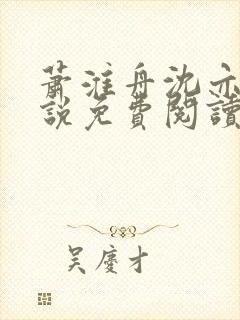 蕭淮舟沈亦
說免費閱讀
吳慶才